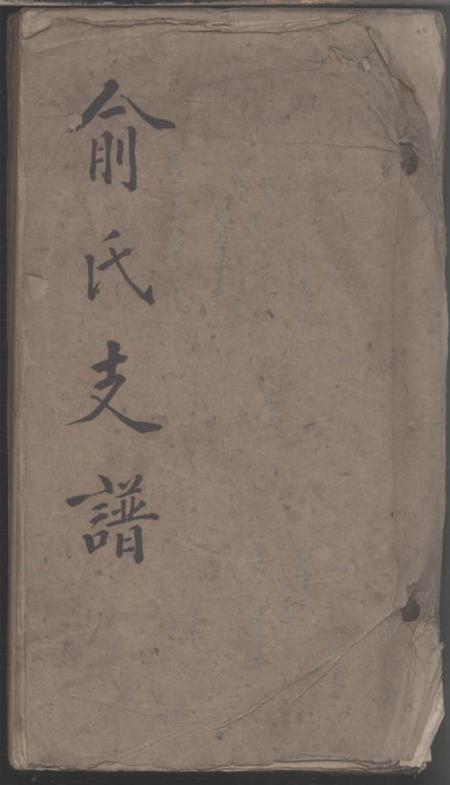 俞氏支譜